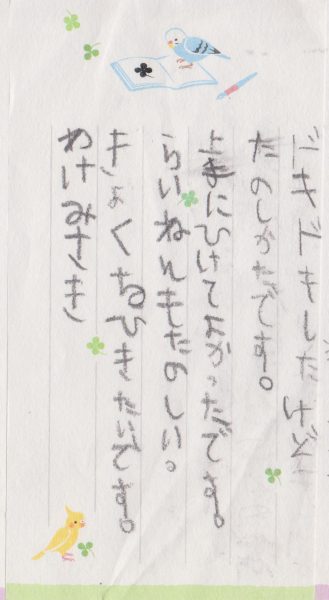 ドキドキしたけど
たのしかたです。
上手にひけてよかったです。
らいねんもたのしい。
きょくもひきたいです。
わけみさき